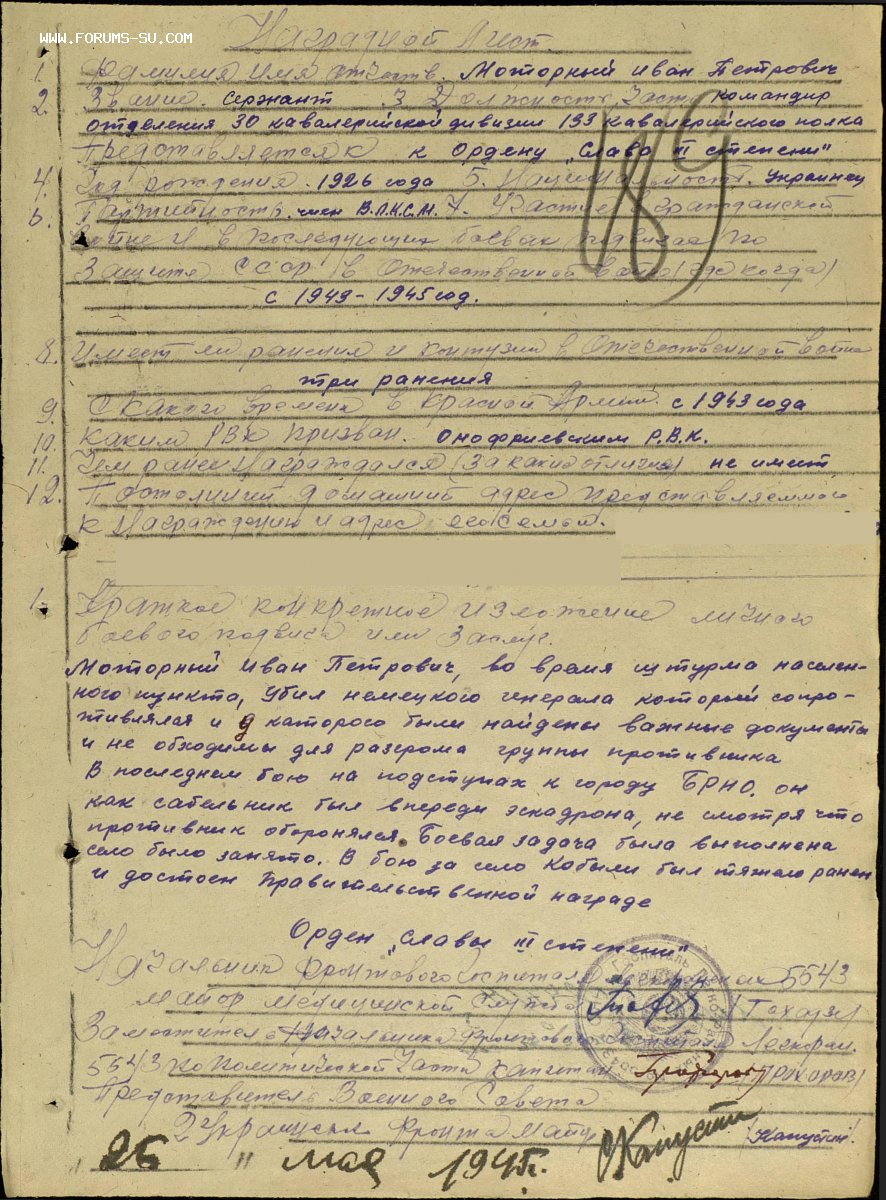 www.forums-su.com
Наградной Лист.
189
1. Фамилия имя отчеств. Моторный Иван Петрович
2. Звание. Сержант 3 Должность, часть командир
отделения 30 кавалерийской дивизии 133 кавалерийского полка
Представляется к Ордену „Слава III степени"
4. Год рождения. 1926 года 5. Национальность. Украинец
6. Партийность. член В.Л.К.С.М. 7. Участие гражданской
войне и в последующих боевых по
Защите СССР (в Отечественной войне) (где когда)
с 1943-1945 год.
8. Имеет ли ранения и контузии в Отечественной войне
три ранения
9. С какого времени в Красной Армии. с 1943 года
10. Каким РВК призван. Онофриевским Р.В.К.
11. Чем ранее награждался (за какие отличия) не имеет
12. Постоянный домашний адрес представляемого
к награждению и адрес его семьи.
1. Краткое конкретное изложение личного
боевого подвига или заслуг.
Моторный Иван Петрович, во время штурма населен-
ного пункта, убил немецкого генерала который сопро-
тивлялся и у каторого были найдены важные документы
и не обходимы для разгрома группы противника
В последнем бою на подступах к городу БРНО. он
как сабельник был впереди эскадрона, не смотря что
противник оборонялся. Боевая задача была выполнена
село было занято. В бою за село Кобыли был тяжело ранен
и достоен Правительственной награде
Орден „Славы III степени"
Начальник фронтового госпиталя легкораненых 5543
майор медицинской службы
Заместитель начальника фронтового госпиталя легкоран.
5543 по политической части капитан /Прохоров/
Представитель Военного Совета
2 Украинск. фронта майор /Капустин/
26 " мая 1945г.